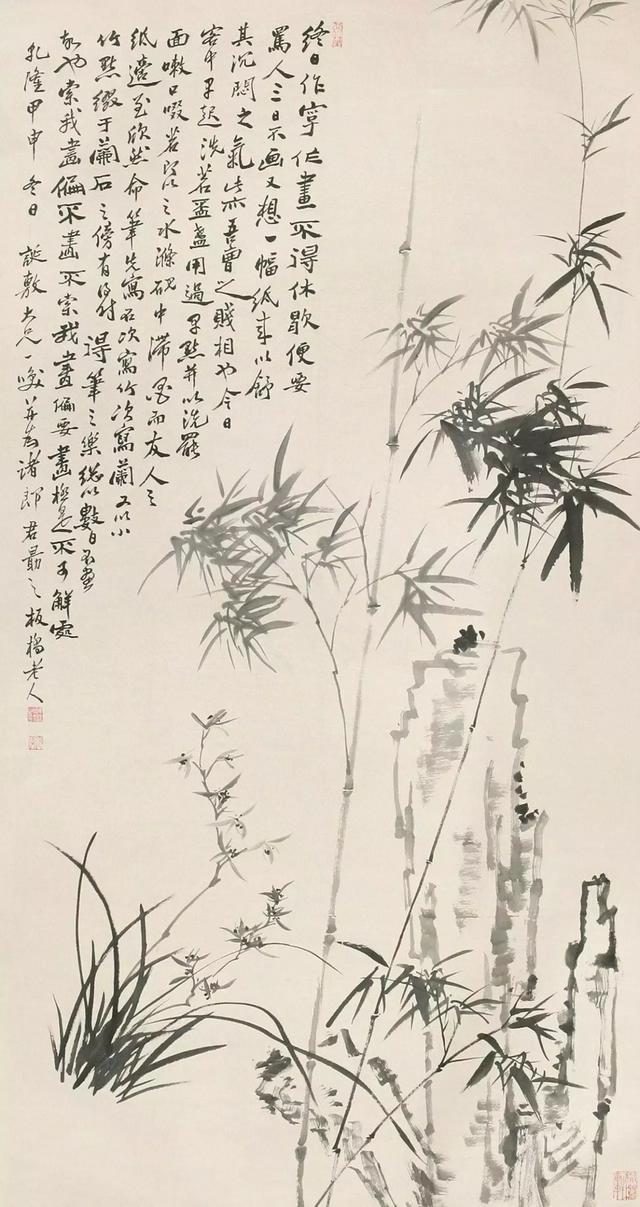 終日作字作畫不得休歇便要
罵人三日不画又想一幅紙來以舒
其沉悶之氣此亦吾曹之賤相也今日
客中早起洗茗盃盞用過早點并以洗罷
面嗽口啜茗之水滌硯中滯墨而友人之
紙適至欣然命筆先寫石次寫竹次寫蘭又以小
竹點綴于蘭石之傍有得時得筆之樂總以數日不畫
故也索我畫偏不畫不索我畫偏要畫極是不可解處
乾隆甲申冬日誕敷大兄一噱并為諸郎君勗之板橋老人